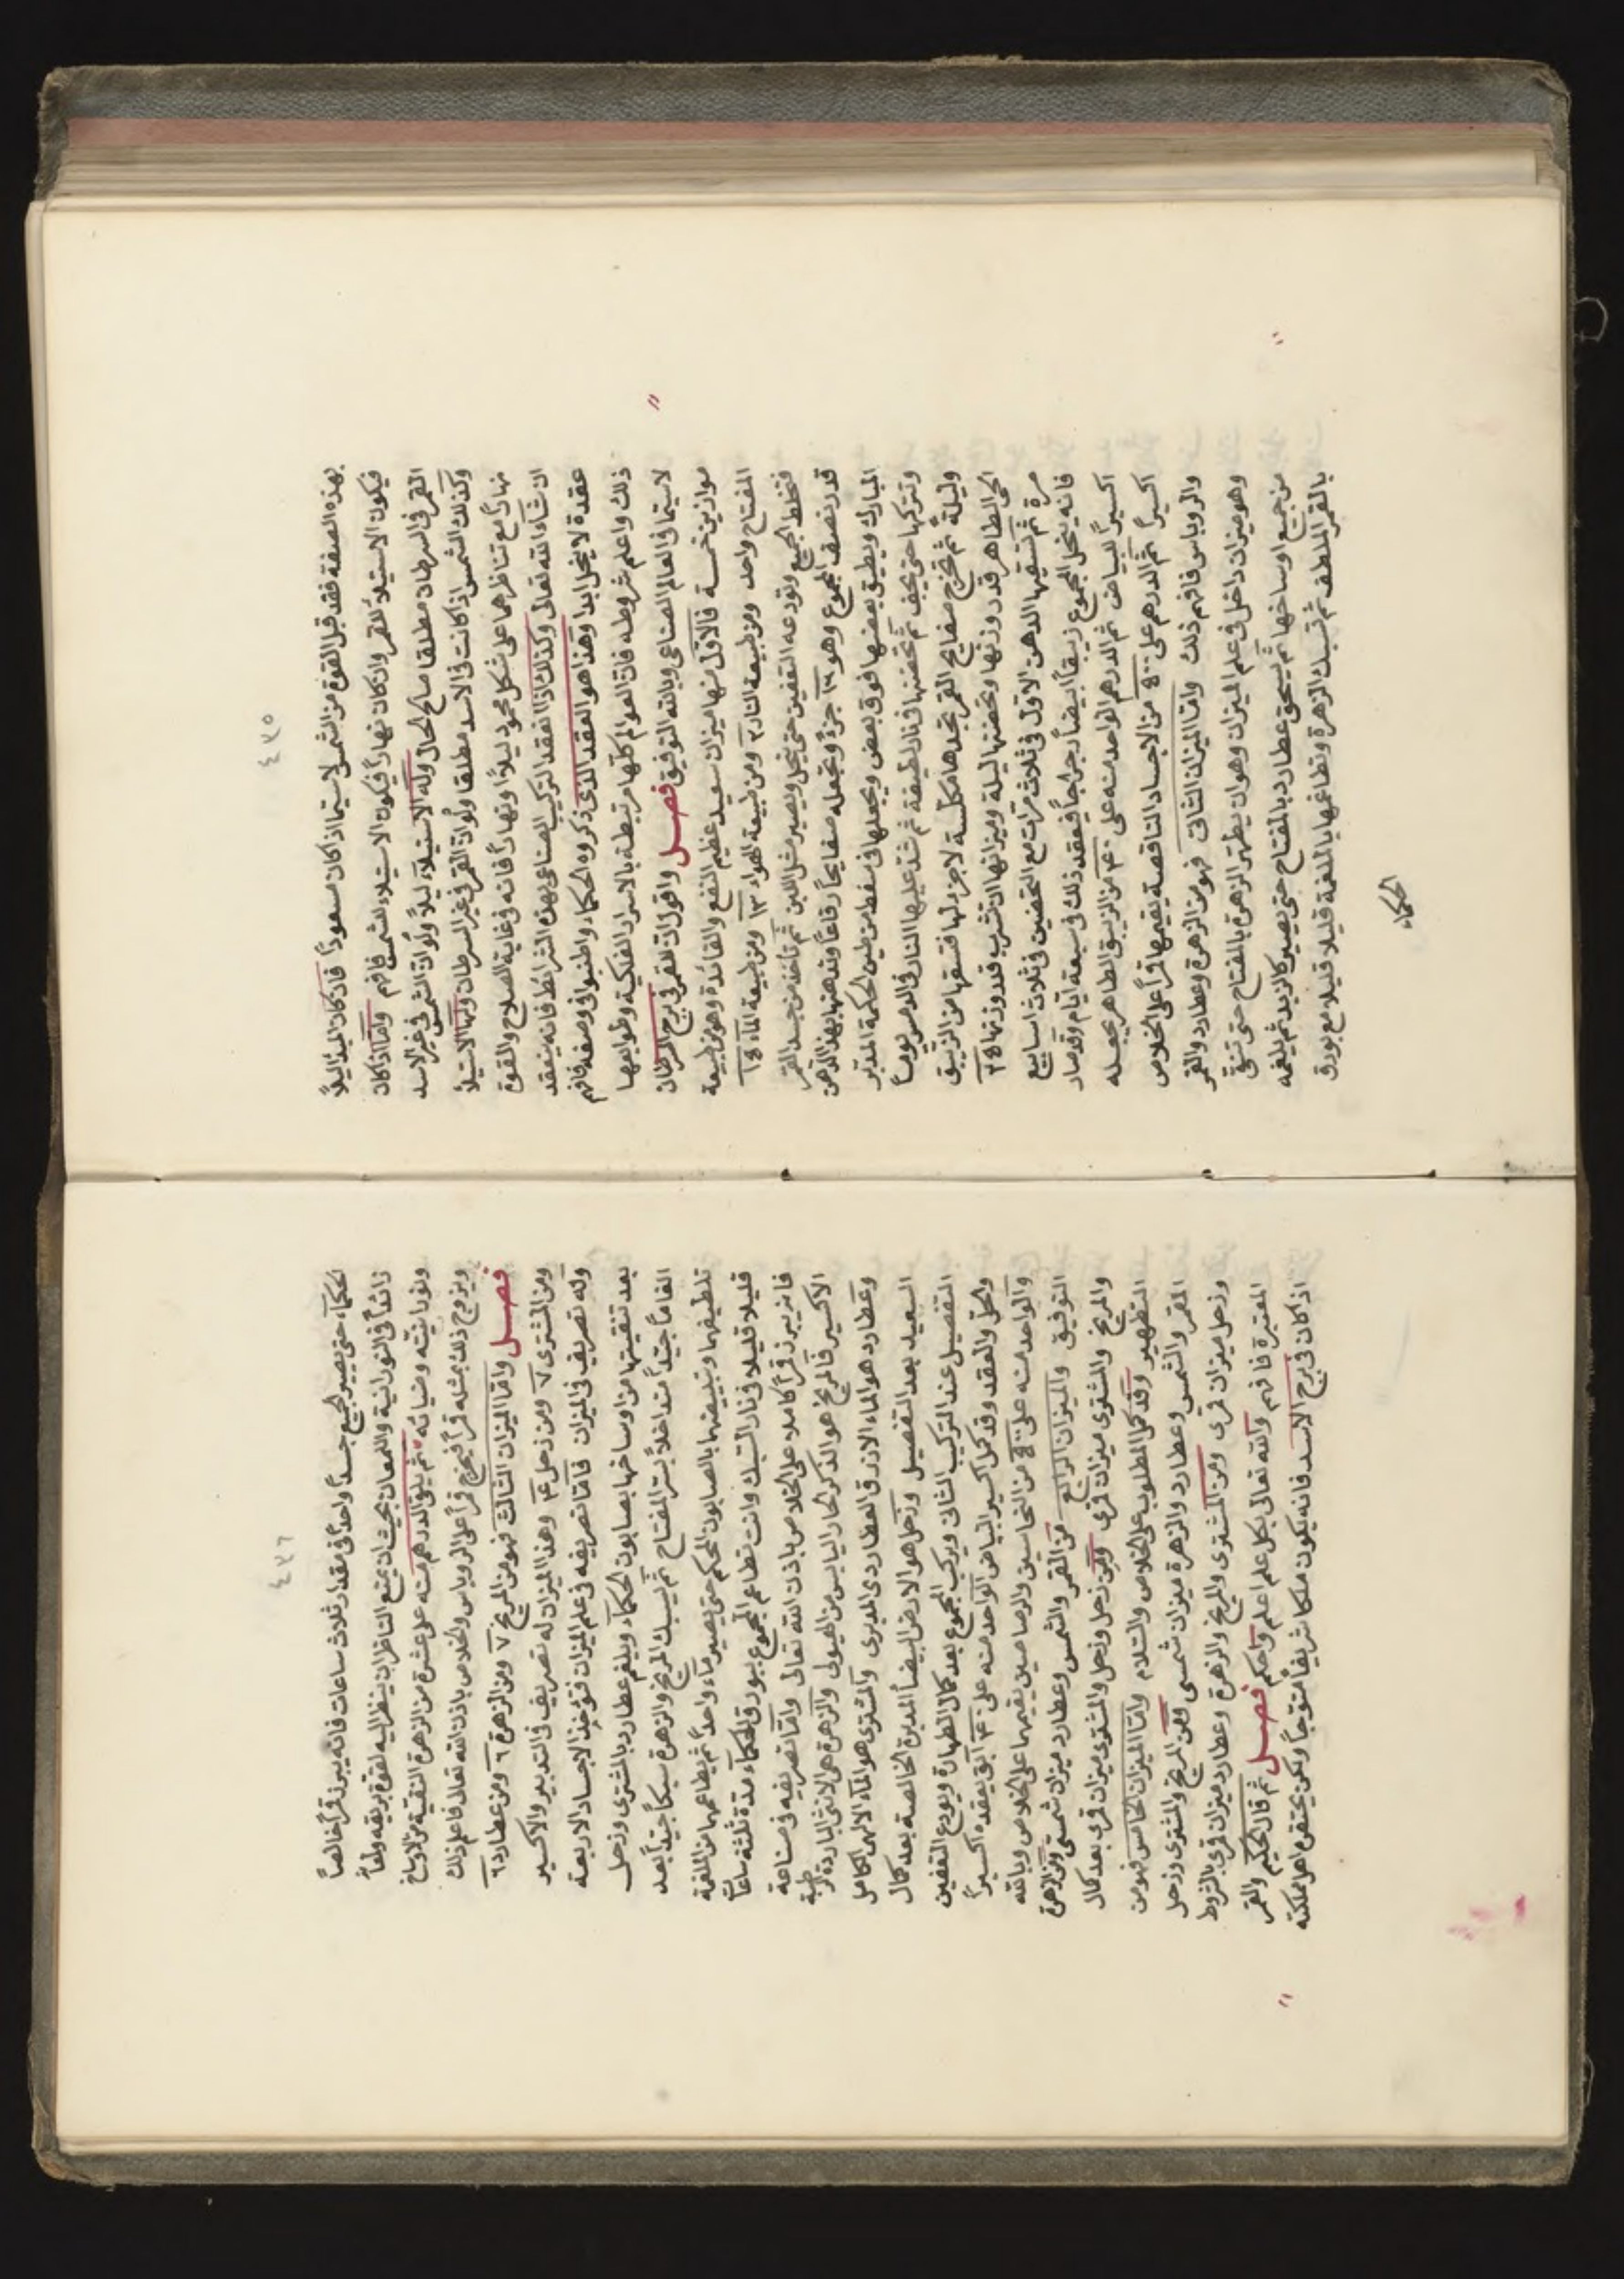 ٤٣٥
بهذه الصفة فقد قبل القوة من الشمس لا سيما اذا كان مسعوداً فان كان الميلاد ليلاً
فيكون الاستيلاء للقمر وان كان نهاراً فيكون الاستيلاء للشمس فافهم وأما اذا كان
القمر في السرطان مطلقا صالح الحال وله الاستيلاء ليلاً ولو ان الشمس في غير الاسد
وكذلك الشمس اذا كانت في الاسد مطلقا ولو ان القمر في غير السرطان ولها الاستيلاء
نهاراً مع تناظرهما على شكل محمود ليلاً ونهاراً فانه في غاية الصلاح والقوة
ان شاء الله تعالى وكذلك اذا انعقد التركيب الصناعي بهذه الشرائط فانه ينعقد
عقدة لا ينحل ابدا وهذا هو العقد الذي ذكروه الحكماء واطنبوا في وصفه فافهم
ذلك واعلم شروطه فان العوالم كلها مرتبطة بالاسرار الفلكية وطوابعها
لا سيما في العالم الصناعي وبالله التوفيق فصل واقول ان للقمر في برج السرطان
موازين خمسة فالاول منها ميزان سعيد عظيم النفع والفائدة وهو من طبيعة
المفتاح واحد ومن طبيعة النار ٢ ومن طبيعة الهواء ١٣ ومن طبيعة الماء ١٤
فتخلط الجميع وتودعه التعفين حتى ينحل ويصير مثل اللبن ثم تأخذ من جسد القمر
قدر نصف المجموع وهو ١٩ جزءً وتجعله صفايحاً رقاقاً وتدهنها بهذا الدهن
المبارك ويطبق بعضها فوق بعض ويجعلها في سفط من طين الحكمة المدبر
وتتركها حتى يجف ثم تحضنها في نار لطيفة ثم شد عليها النار في الدمس يوماً
وليلةً ثم تخرج صفايح القمر تجدها مكلسة لا جزء لها فتسقها من الزيبق
الحي الطاهر قدر وزنها وتحضنها ليلة وميزانها ان تشرب قدر وزنها ٣٤
مرة ثم تسقيها الدهن الاول في ثلاث مرات مع التحضين في ثلاث اسابيع
فانه ينحل المجموع زيبقاً ابيضاً رجراجاً فيعقد ذلك في سبعة ايام وقد صار
اكسيراً للبياض ثم الدرهم الواحد منه على ٣٠ من الزيبق الطاهر يجعله
اكسيراً ثم الدرهم على ٤٠٠ من الاجساد الناقصة يقيمها قمراً على الخلاص
والروباس فافهم ذلك وأما الميزان الثاني فهو من الزهرة وعطارد والقمر
وهو ميزان داخل في علم الميزان وهو ان يطهر الزهرة بالمفتاح حتى تنقى
من جميع اوساخها ثم يسحق عطارد بالمفتاح حتى يصير كالزبد ثم يلغمه
بالقمر الملطف ثم تسبك الزهرة وتطاعمها بالملغمة قليلا قليلا مع بورق
الحكماء
٤٣٦
الحكماء حتى يصير الجميع جسداً واحداً في مقدار ثلاث ساعات فانه يبرز قمراً خالصاً
زائداً في النورانية واللمعان بحيث ان يمنع الناظر ان ينظر اليه لقوة بريقه ولمعا
ونورانيته وضيائه ثم يلق الدرهم منه على عشرة من الزهرة النقية من الاوساخ
ويزوج ذلك بمثله قمراً فيخرج قمراً على الروباس والخلاص باذن الله تعالى فاعلم ذلك
فصل وأما الميزان الثالث فهو من المريخ ٧ ومن الزهرة ٦ ومن عطارد ٦
ومن المشتري ٧ ومن زحل ٣ وهذا الميزان له تصريف في التدبير والاكسير
وله تصريف في الميزان فأما تصريفه في علم الميزان فتؤخذ الاجساد الاربعة
بعد تنقيتها من اوساخها بصابون الحكماء ويلغم عطارد بالمشتري وزحل
الغاماً جيّداً متداخلاً بستر المفتاح ثم يسبك المريخ والزهرة سبكاً جيّداً بعد
تلطيفهما وتبييضهما بالصابون المحكم حتى يصير ماء واحداً ثم يطاعمها من الملغمة
قليلا قليلا في نار السبك وانت تطاعم المجموع ببورق الحكماء مدة ثلثة ساعات
فانه يبرز قمراً كاملا على الخلاص باذن الله تعالى وأما تصريفه في صناعة
الاكسير فالمريخ هو الذكر الحار اليابس من الهيولى والزهرة هي الانثى الباردة الرطبة
وعطارد هو الماء الازرق العطاردي المدبر والمشتري هو الماء الالهي الكامل
السعيد بعد التفصيل وزحل هو الارض البيضاء المدبرة الخالصة بعد كمال
التفصيل عند التركيب الثاني ويركب المجموع بعد كمال الطهارة ويودع التعفين
والحل والعقد وقد كمل اكسير البياض الواحد منه على ٣٠ آبق يعقده اكسيراً
والواحد منه على ٤٠٠ من النحاسين والرصاصين يقيمهما على الخلاص وبالله
التوفيق والميزان الرابع من القمر والشمس وعطارد ميزان شمسي ومن الزهرة
والمريخ والمشتري ميزان قمري ومن زحل وزحل والمشتري ميزان قمري بعد كمال
التطهير وقد كمل المطلوب على الخلاص والسلام وأما الميزان الخامس فهو من
القمر والشمس وعطارد والزهرة ميزان شمسي ومن المريخ والمشتري وزحل
وزحل ميزان قمري ومن المشتري والمريخ والزهرة وعطارد ميزان قمري بالشروط
المعتبرة فافهم والله تعالى بكل علم اعلم واحكم فصل ثم قال الحكيم والقمر
اذا كان في برج الاسد فانه يكون ملكا شريفاً متوجاً ولكن يحتقره اهل مملكته